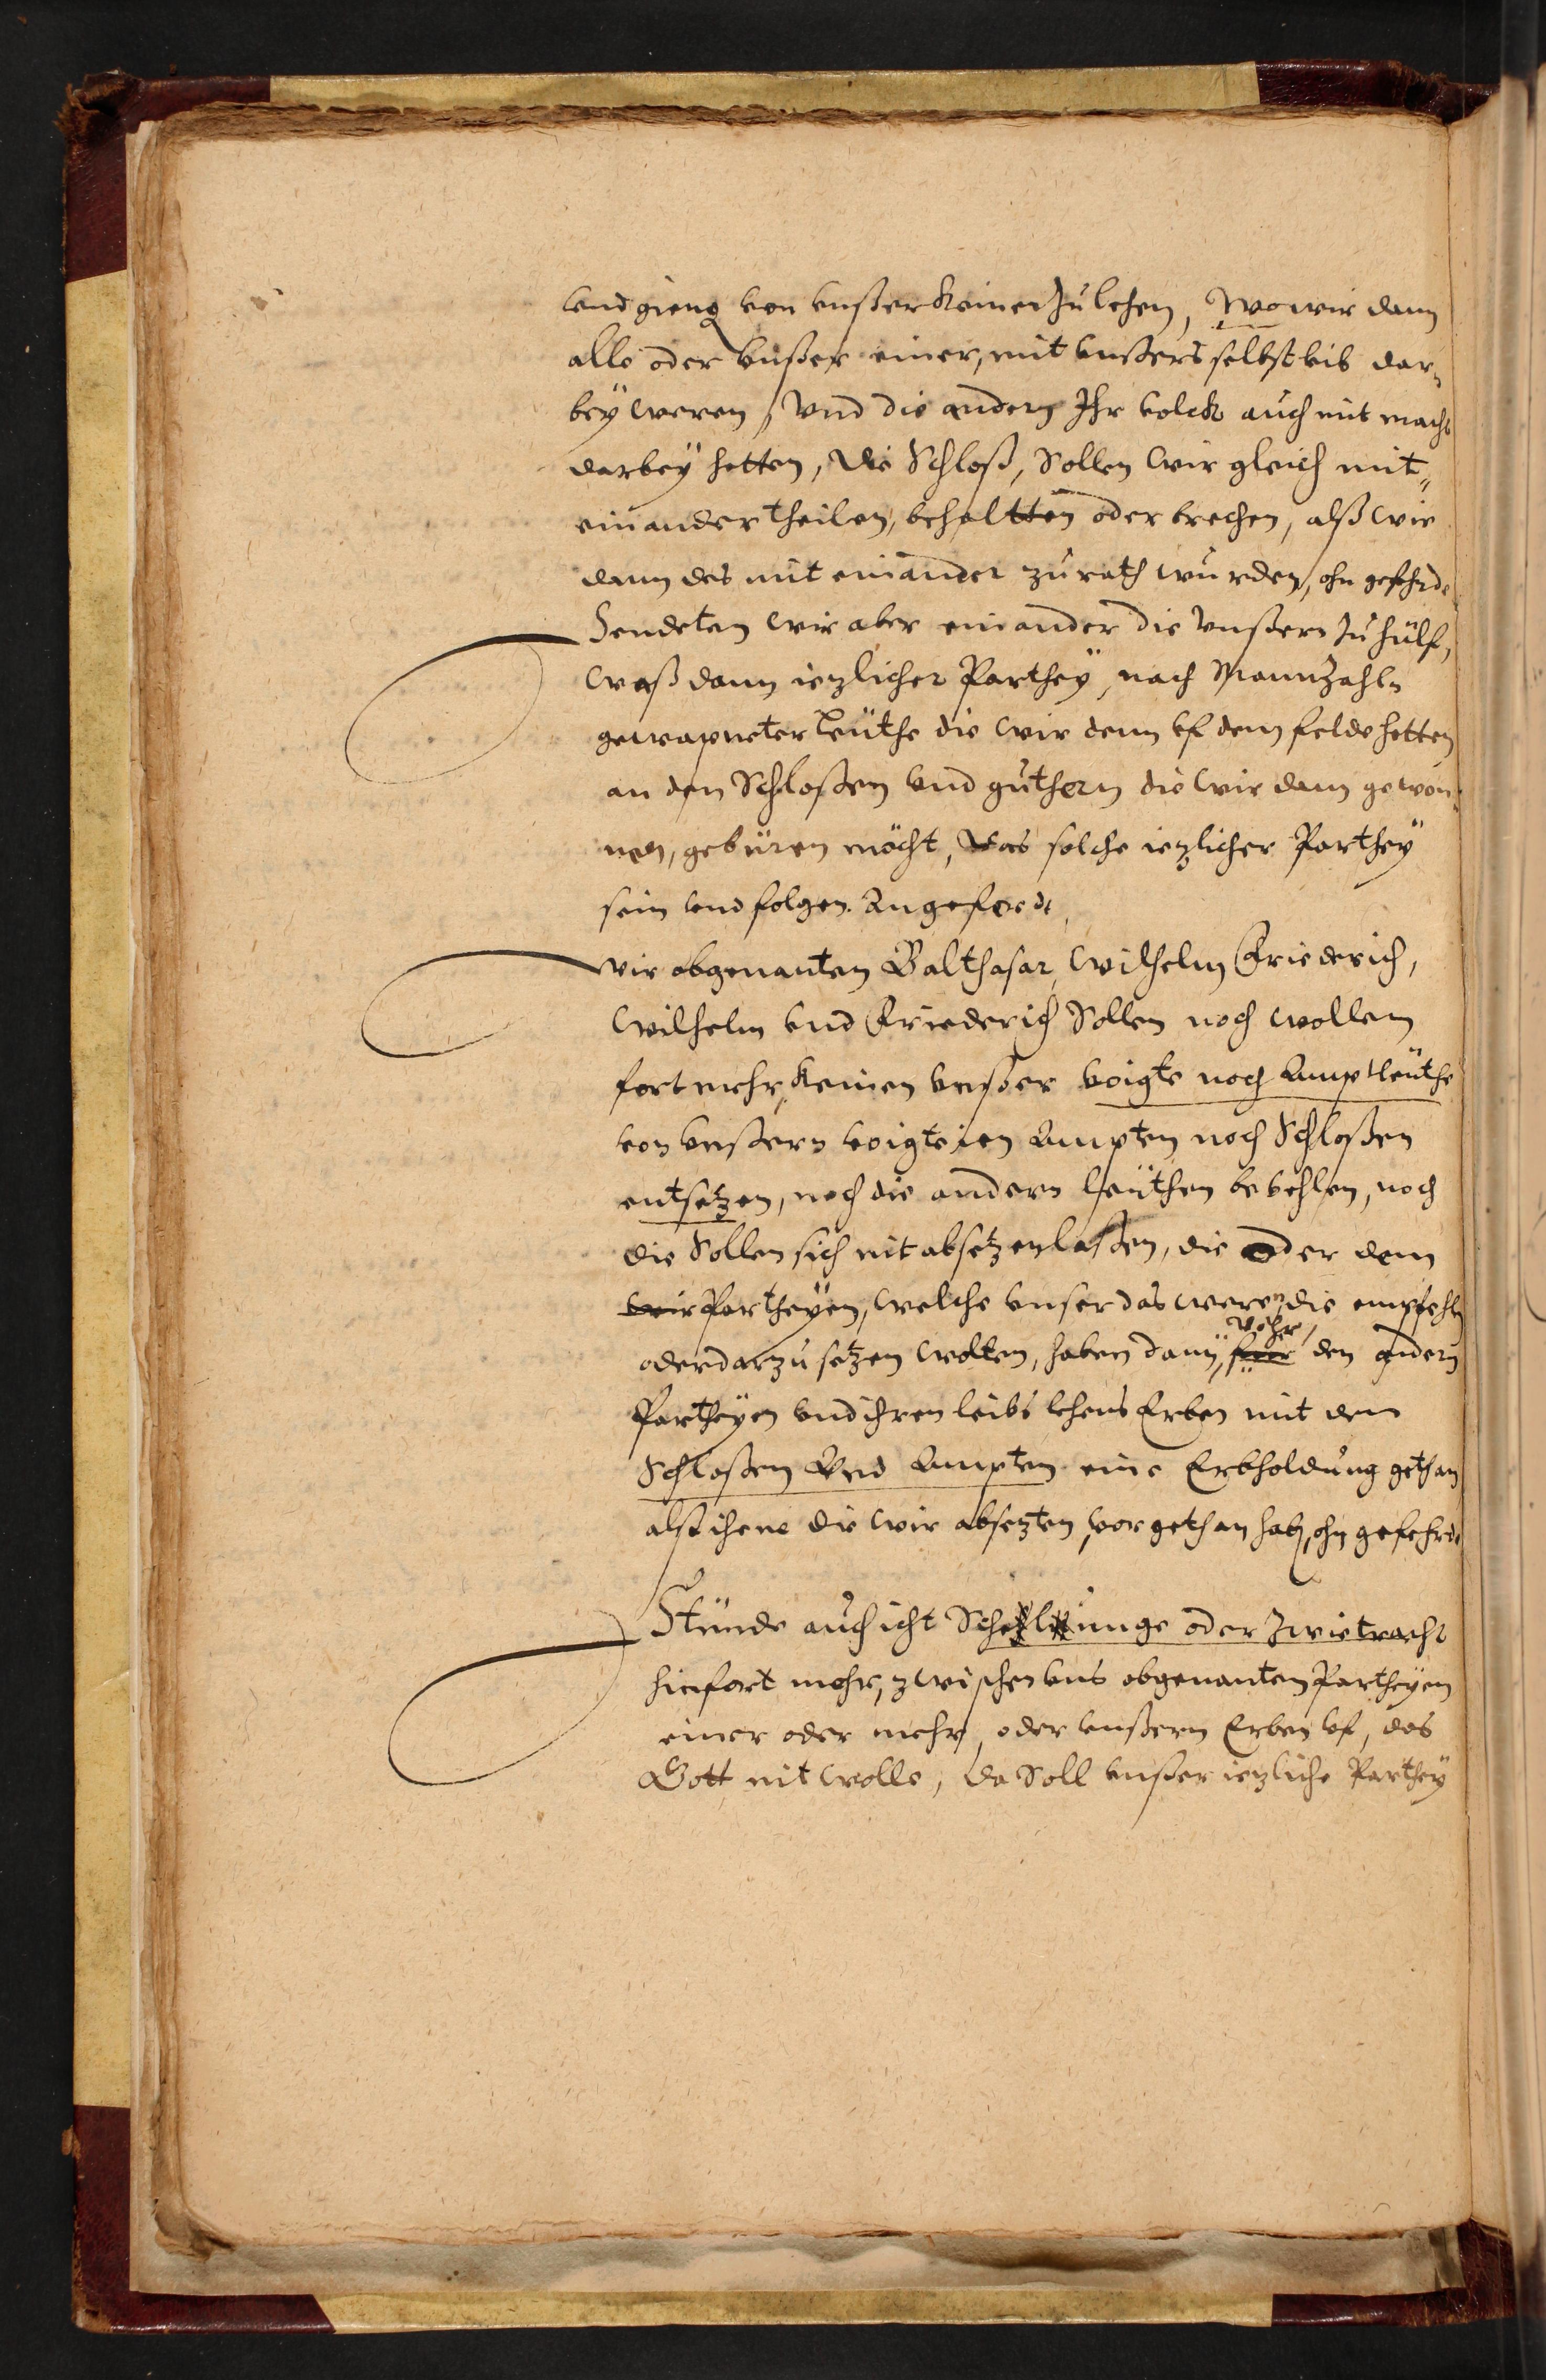 vnd gieng von vnßer keinen zu lehen, Wo wir dann
alle oder vnßer einer, mit vnßers selbst leib dar„
bey weren, Vnd die andern Ihr volck auch mit macht
darbey hetten, Die Schloß, Sollen wir gleich mit„
einander theilen, behaltten oder brechen, alß wir
dann des mit einander zu rath wurden, ohn gefehrde
Sendeten wir aber einander die Vnßern zu hülf,
Waß dann iezlicher Parthey, nach Mannzahln
gewapneter Leüthe die wir denn vf dem felde hetten
an den Schloßen vnd guthern die wir dann gewon„
nen, gebüren möcht, Das solche iezlicher Parthey
sein vnd folgen. Angeferde,
Wir obgenanten Balthasar, Wilhelm Friederich,
Wilhelm vnd Friederich Sollen noch wollen
fort mehr, keinen vnßer voigte noch Amptleüthe
von vnßern voigteien Ampten noch Schloßen
entsetzen, noch die andern leüthen bevehlen, noch
die Sollen sich nit absetzen laßen, die oder dem
wir Partheyen, welche vnser das weren, die empfehln
oder darzu setzen wolten, haben dann, vorher den andern
Partheyen vnd ihren leibs lehens Erben mit den
Schloßen Vnd Ampten eine Erbholdung gethan
alß ihene die wir absezten, vor gethan hab, ohn gefehrde
Stünde auch icht Schellunge oder Zwietracht
hinfort mehr, zwischen vns obgenanten Partheyen
einer oder mehr, oder vnßern Erben vf, das
Gott nit wolle, da Soll vnßer iezliche Parthey